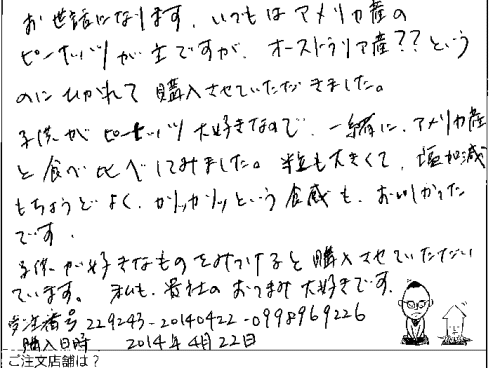 お世話になります。いつもはアメリカ産の
ピーナッツが主ですが、オーストラリア産??という
のにひかれて購入させていただきました。
子供がピーナッツ大好きなので、一緒に、アメリカ産
と食べ比べしてみました。粒も大きくて、塩加減
もちょうどよく、カリッカリッという食感も、おいしかった
です。
子供が好きなものをみつけると購入させていただい
ています。私も、貴社のおつまみ大好きです。
受注番号 229243-20140422-0998969226
購入日時 2014年4月22日
ご注文店舗は?